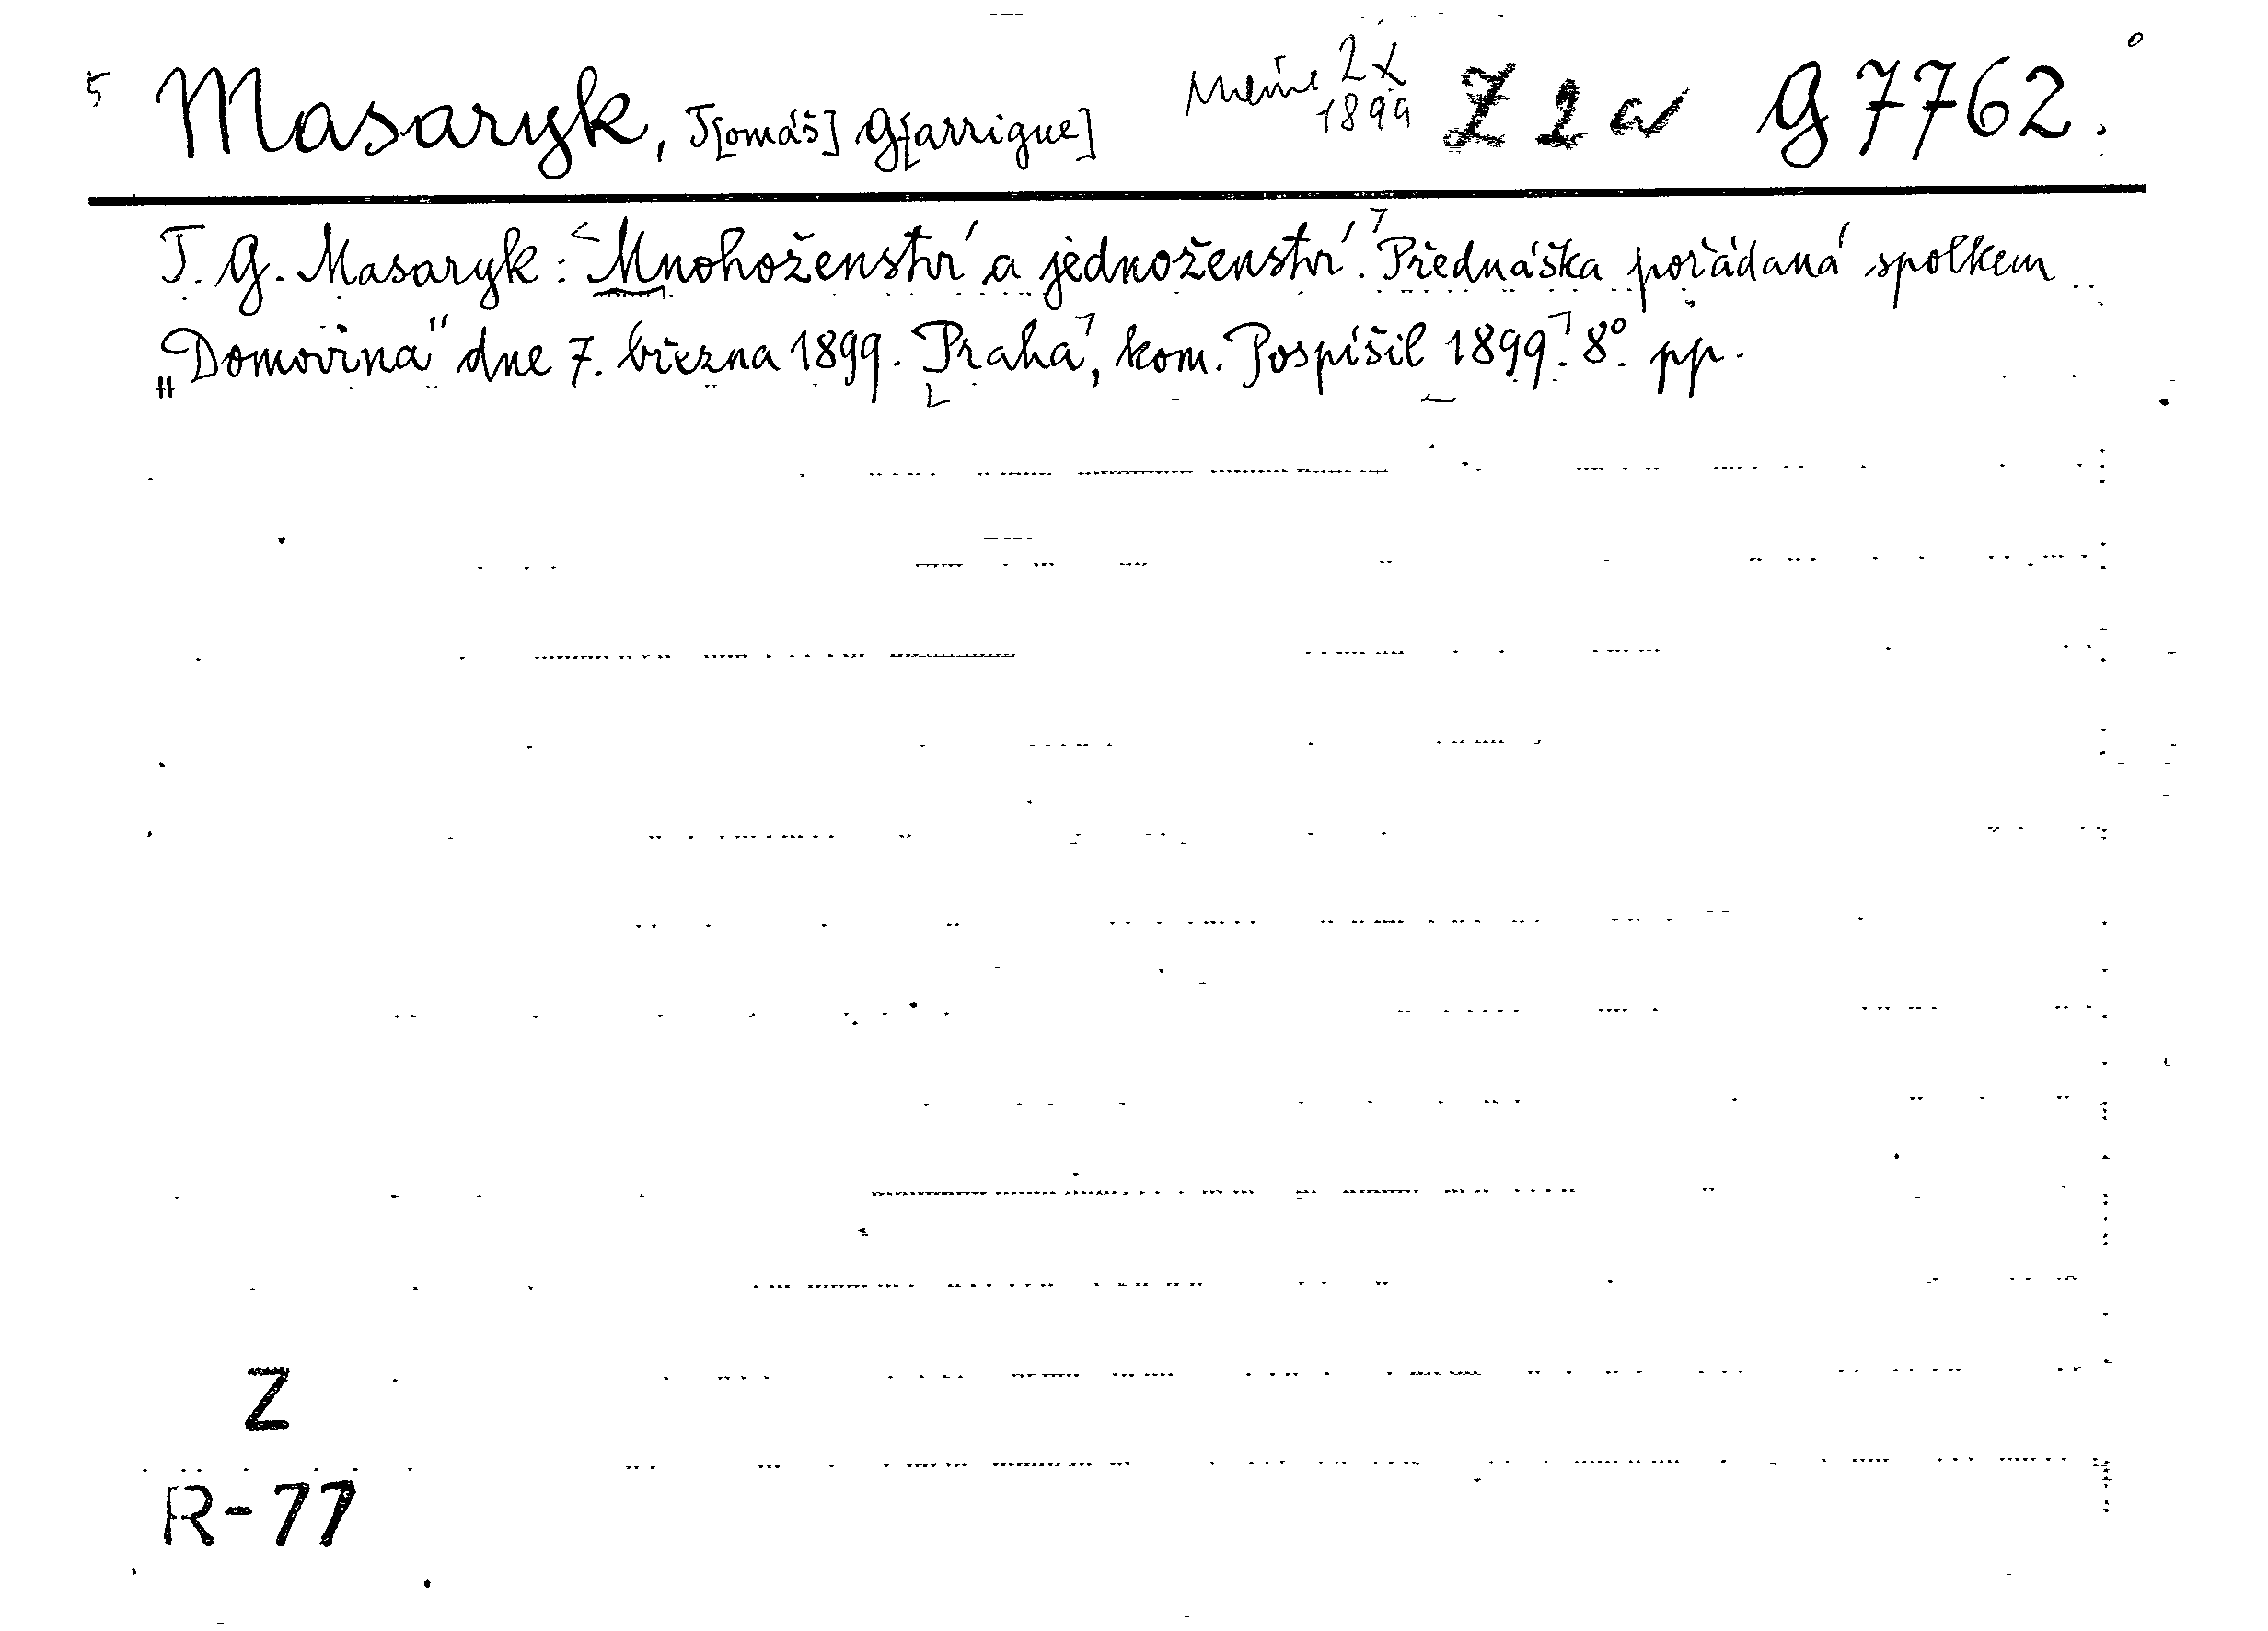 5 Masaryk, T[omáš] G[arrigue] 2x 1899 Z 2 a G 7762.
T. G. Masaryk: Mnohoženství a jednoženství. Přednáška pořádaná spolkem
„Domovina" dne 7. března 1899. Praha, kom. Pospíšil 1899. 8° pp.
Z
R-77